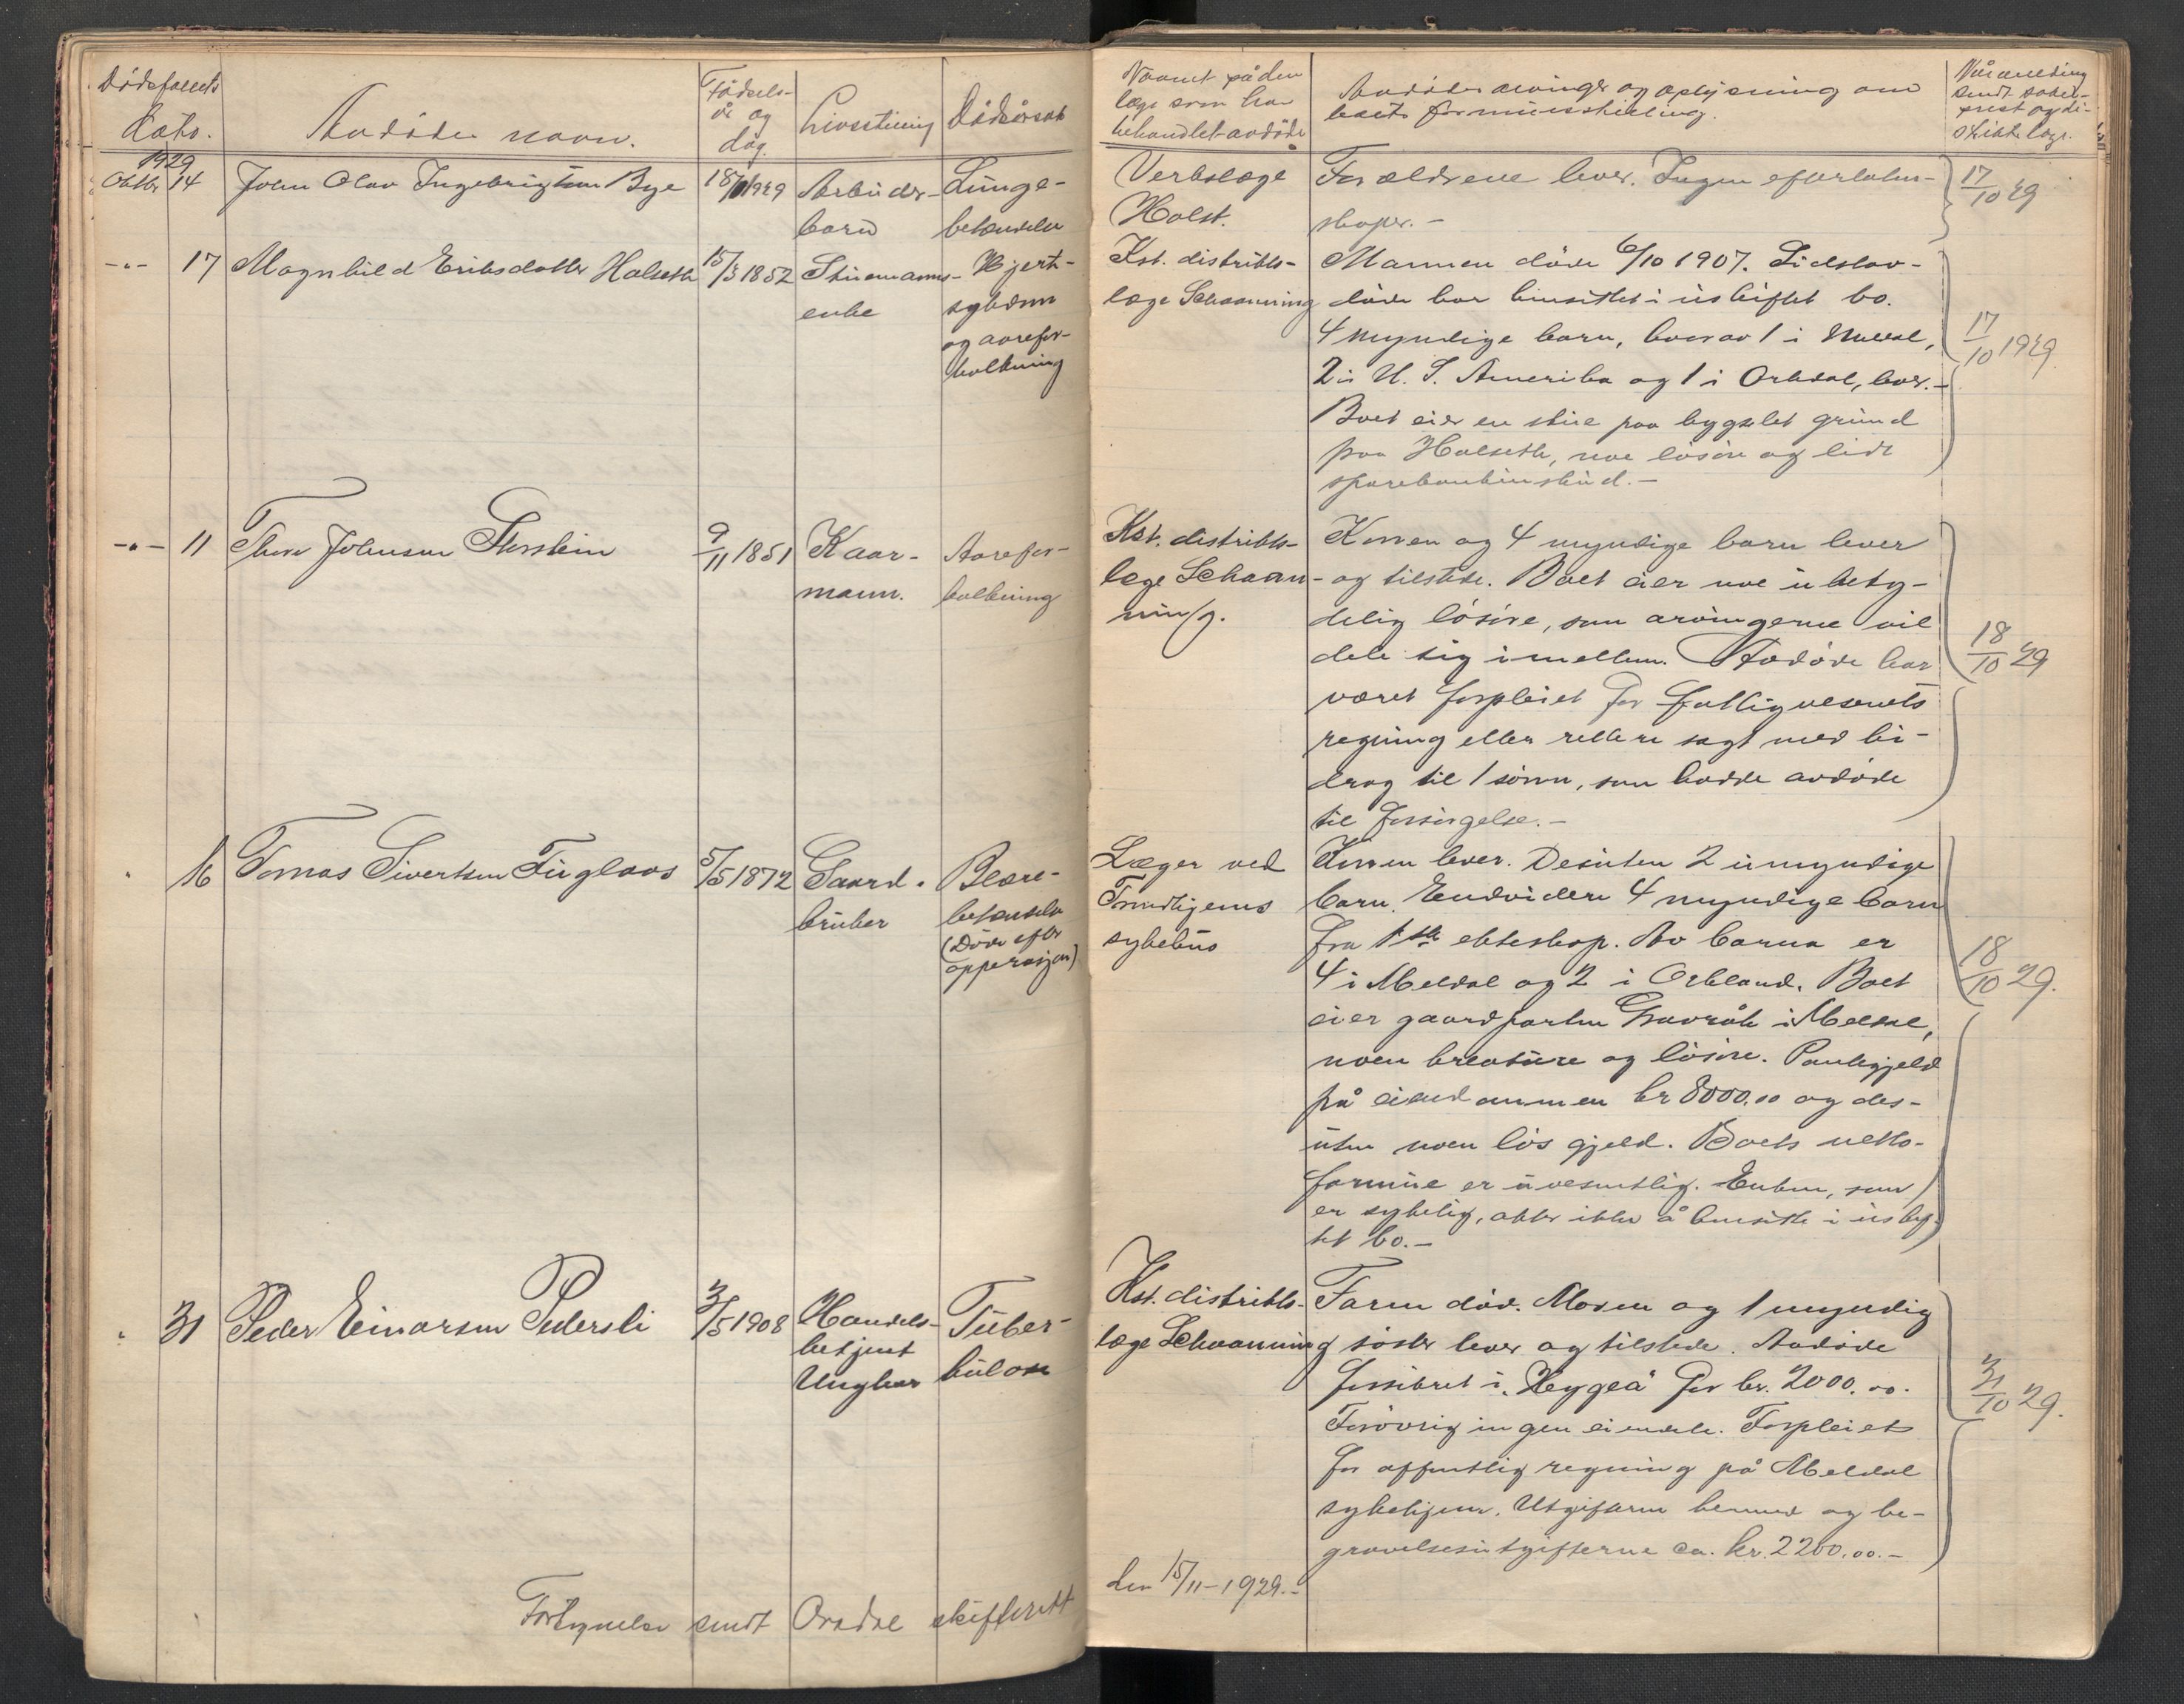 Dødsfallets
dato.
Avdødes navn.
Fødsels-
år og
dag.
Livsstilling
Dødsårsak
Navnet på den
læge som har
behandlet avdøde
Avdødes arvinger og oplysning om
boets formuesstilling.
Når melding
sendt sokne-
prest og di-
striktslæge.
1929
Oktbr 14 John Olav Ingebrigtsen Bye 18/1929 Arbeider-
barn
Lunge-
betændelse
Verkslæge
Holst.
Forældrene lever. Ingen efterlaten-
skaper.-
17/10 29
-"- 17 Magnhild Eriksdatter Halseth 15/3 1852 Stuemanns-
enke
Hjerte-
sykdom
og aarefor-
kalkning
Kst. distrikts-
læge Schaanning
Mannen døde 6/10 1907. Sidstav-
døde har hensittet i uskiftet bo.
4 myndige barn, hvorav 1 i Meldal,
2 i U. S. Amerika og 1 i Orkdal, lever.-
Boet eier en stue paa bygslet grund
paa Halseth, noe løsøre og lidt
sparebankinskud.-
17/10 1929
-"- 11 Thore Johnsen Storstein 9/11 1851 Kaar-
mann.
Aarefor-
kalkning
Kst. distrikts-
læge Schaan-
ning.
Konen og 4 myndige barn lever
og tilstede. Boet eier noe ubety-
delig løsøre, som arvingerne vil
dele sig imellem. Avdøde har
været forpleiet for fattigvesenets
regning eller rettere sagt med bi-
drag til 1 sønn, som hadde avdøde
til forsørgelse.-
18/10 29
" 16 Tomas Sivertsen Fuglaas 5/5 1872 Gaard-
bruker
Blære-
betændelse
(Døde efter
opperasjon)
Læger ved
Trondhjems
sykehus
Konen lever. Desuten 2 umyndige
barn. Endvidere 4 myndige barn
fra 1ste ekteskap. Av barna er
4 i Meldal og 2 i Orkland. Boet
eier gaardparten i Meldal,
noen kreature og løsøre. Pantegjeld
på eiendommen kr 8000.00 og des-
uten noen løs gjeld. Boets netto-
formue er uvesentlig. Enken, som
er sykelig, akter ikke å hensitte i uskif-
tet bo.-
18/10 29.
" 31 Peder Einarsen Pedersli 3/5 1908 Handels-
betjent
Ungkar
Tuber-
kulose
Kst. distrikts-
læge Schaanning
Faren død. Moren og 1 myndig
søster lever og tilstede. Avdøde
forsikret i "Hygea" for kr. 2000.00.
Forøvrig ingen eiendele. Forpleiet
for offentlig regning på Meldal
sykehjem. Utgifterne herved og be-
gravelsesutgifterne ca. kr. 2200.00.-
31/10 29.
Fortegnelse sendt Orkdal skifterett
den 15/11-1929.-